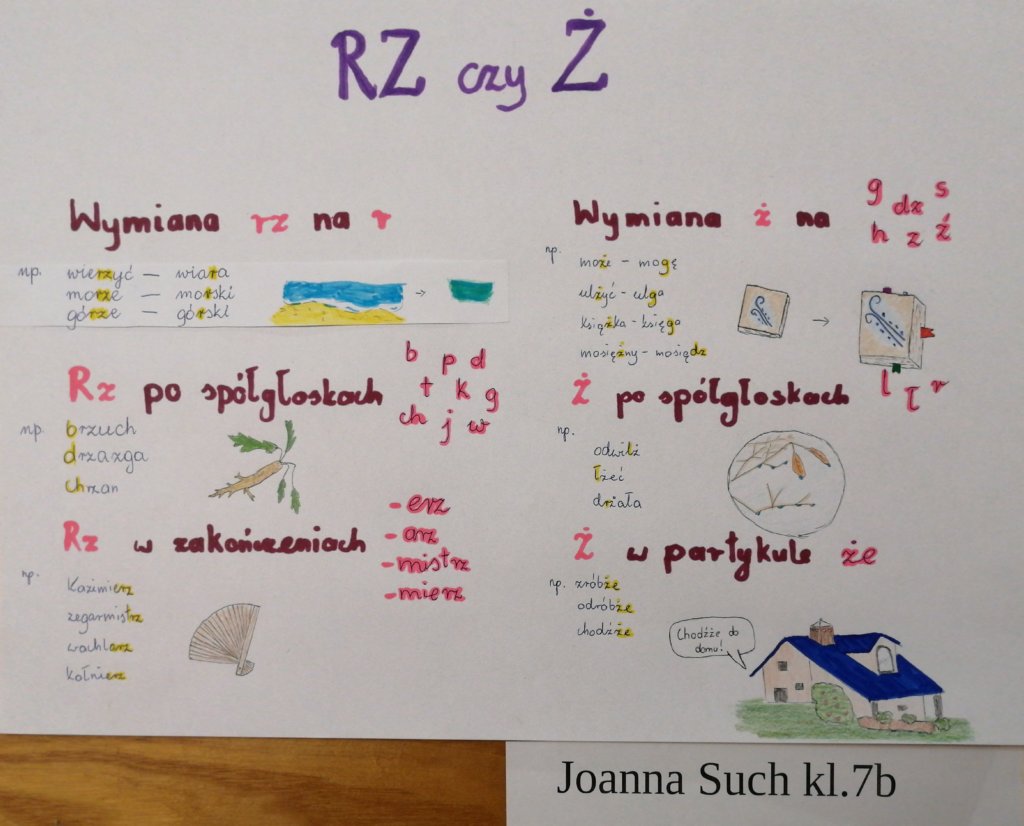 RZ czy Ż
Wymiana rz na r
np.
wierzyć – wiara
morze – morski
górze – górski
Rz po spółgłoskach
b p d
t k g
ch j w
np.
brzuch
drzazga
chrzan
Rz w zakończeniach
-erz
-arz
-mistrz
-mierz
np.
Kazimierz
zegarmistrz
wachlarz
kołnierz
Wymiana ż na
g dz s
h z ź
np.
może – mogę
ulżyć – ulga
książka – księga
mosiężny – mosiądz
Ż po spółgłoskach
l ł r
np.
odwilż
łżeć
drżała
Ż w partykule że
np. zróbże
odróbże
chodźże
Chodźże do
domu!
Joanna Such kl.7b